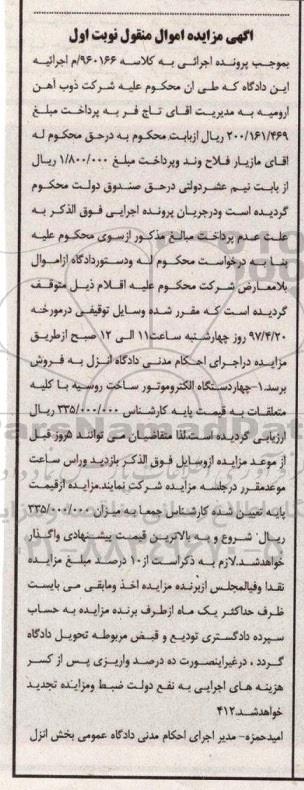 آگهی مزایده اموال منقول نوبت اول
بموجب پرونده اجرائی به کلاسه ۹۶۰۱۶۶/م اجرائیه
این دادگاه که طی ان محکوم علیه شرکت ذوب آهن
ارومیه به مدیریت آقای تاج فر به پرداخت مبلغ
۲۰۰/۱۶۱/۴۶۹ ریال ازبابت محکوم به درحق محکوم له
اقای مازیار فلاح وند وپرداخت مبلغ ۱/۸۰۰/۰۰۰ ریال
از بابت نیم عشردولتی درحق صندوق دولت محکوم
گردیده است ودرجریان پرونده اجرایی فوق الذکر به
علت عدم پرداخت مبالغ مذکور ازسوی محکوم علیه
بنا به درخواست محکوم له ودستوردادگاه ازاموال
بلامعارض شرکت محکوم علیه اقلام ذیل متوقف
گردیده است که مقرر شده وسایل توقیفی درمورخه
۹۷/۴/۲۰ روز چهارشنبه ساعت۱۱ الی ۱۲ صبح ازطریق
مزایده دراجرای احکام مدنی دادگاه انزل به فروش
برسد.۱-چهاردستگاه الکتروموتور ساخت روسیه با کلیه
متعلقات به قیمت پایه کارشناس ۳۳۵/۰۰۰/۰۰۰ ریال
ارزیابی گردیده است.لذا متقاضیان می توانند ۵روز قبل
از موعد مزایده ازوسایل فوق الذکر بازدید وراس ساعت
موعدمقرر درجلسه مزایده شرکت نمایند.مزایده ازقیمت
پایه تعیین شده کارشناس جمعا به میزان ۳۳۵/۰۰۰/۰۰۰
ریال شروع و به بالاترین قیمت پیشنهادی واگذار
خواهدشد.لازم به ذکراست از۱۰ درصد مبلغ مزایده
نقدا وفیالمجلس ازبرنده مزایده اخذ ومابقی می بایست
ظرف حداکثر یک ماه ازطرف برنده مزایده به حساب
سپرده دادگستری تودیع و قبض مربوطه تحویل دادگاه
گردد ، درغیراینصورت ده درصد واریزی پس از کسر
هزینه های اجرایی به نفع دولت ضبط ومزایده تجدید
خواهدشد.۴۱۲
امیدحمزه- مدیر اجرای احکام مدنی دادگاه عمومی بخش انزل